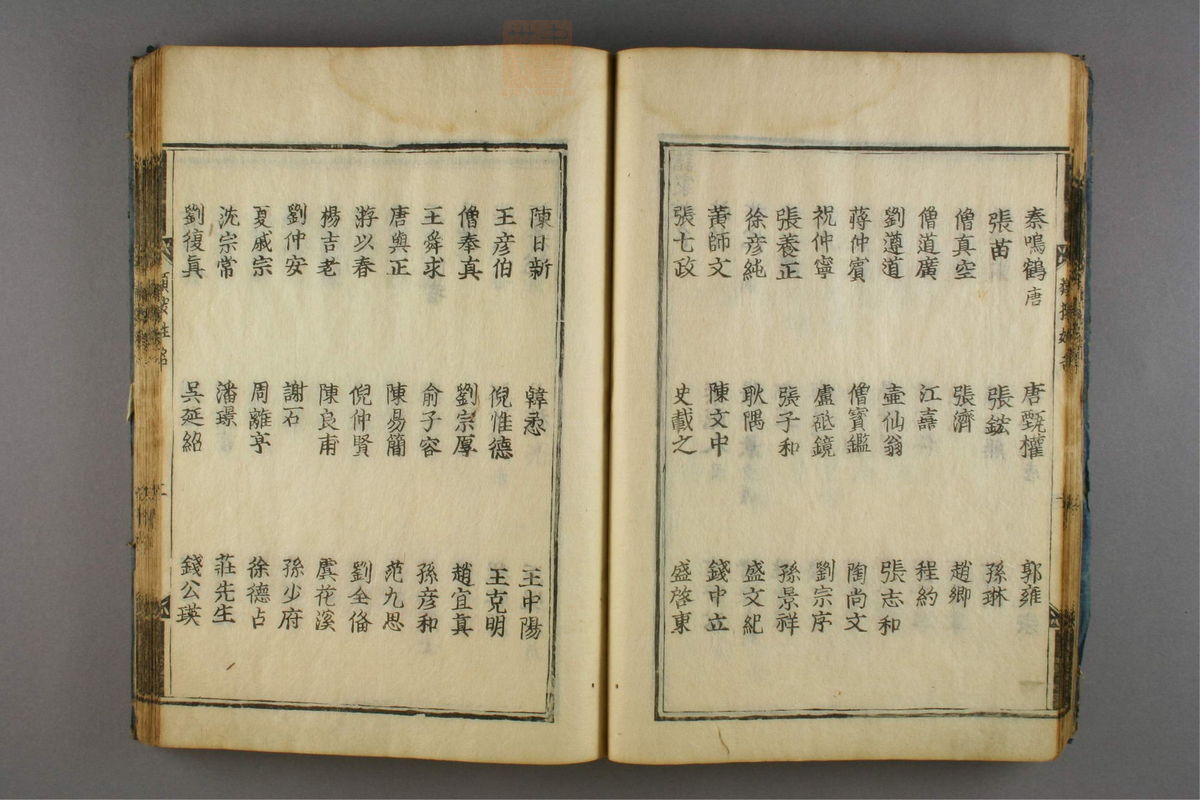 秦鳴鶴唐 唐甄權 郭雍
張苗 張鋐 孫琳
僧真空 張濟 趙卿
僧道廣 江嚞 程約
劉遵道 壷仙翁 張志和
蔣仲賓 僧寶鑑 陶尚文
祝仲寧 盧砥鏡 劉宗序
張養正 張子和 孫景祥
徐彦純 耿隅 盛文紀
黃師文 陳文中 錢中立
張七政 史載之 盛啓東
陳日新 韓悉 王中陽
王彦伯 倪惟德 王克明
僧奉真 劉宗厚 趙宜真
王舜求 俞子容 孫彦和
唐與正 陳易簡 范九思
游以春 倪仲賢 劉全俻
楊吉老 陳良甫 虞花溪
劉仲安 謝石 孫少府
夏戚宗 周離亨 徐德占
沈宗常 潘璟 莊先生
劉復真 吳延紹 錢公瑛